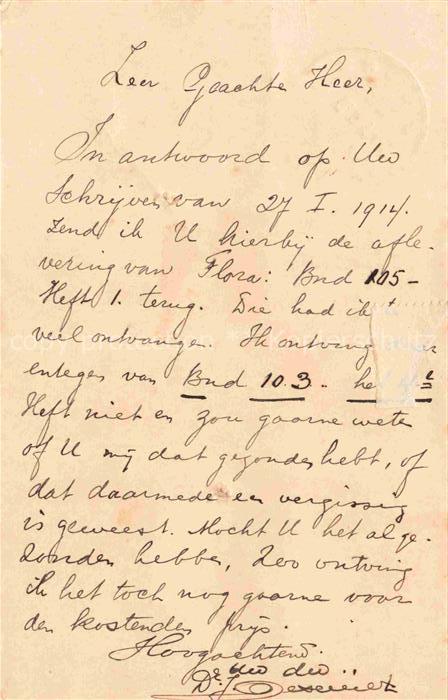 Zeer Geachte Heer,
In antwoord op Uw
Schrijven van 27 I. 1914.
zend ik U hierbij de afle-
vering van Flora: Bnd 105-
Heft 1. terug. Die had ik
veel ontvangen. Ik ontving
enteges van Bnd 103. he
Heft niet en zou gaarne weten
of U mij dat gezonden hebt, of
dat daarmede een vergissing
is geweest. Mocht U het al ge-
zonden hebben, zoo ontving
ik het toch nog gaarne voor
den kostenden prijs.
Hoogachtend.
Uw dw
Dr J